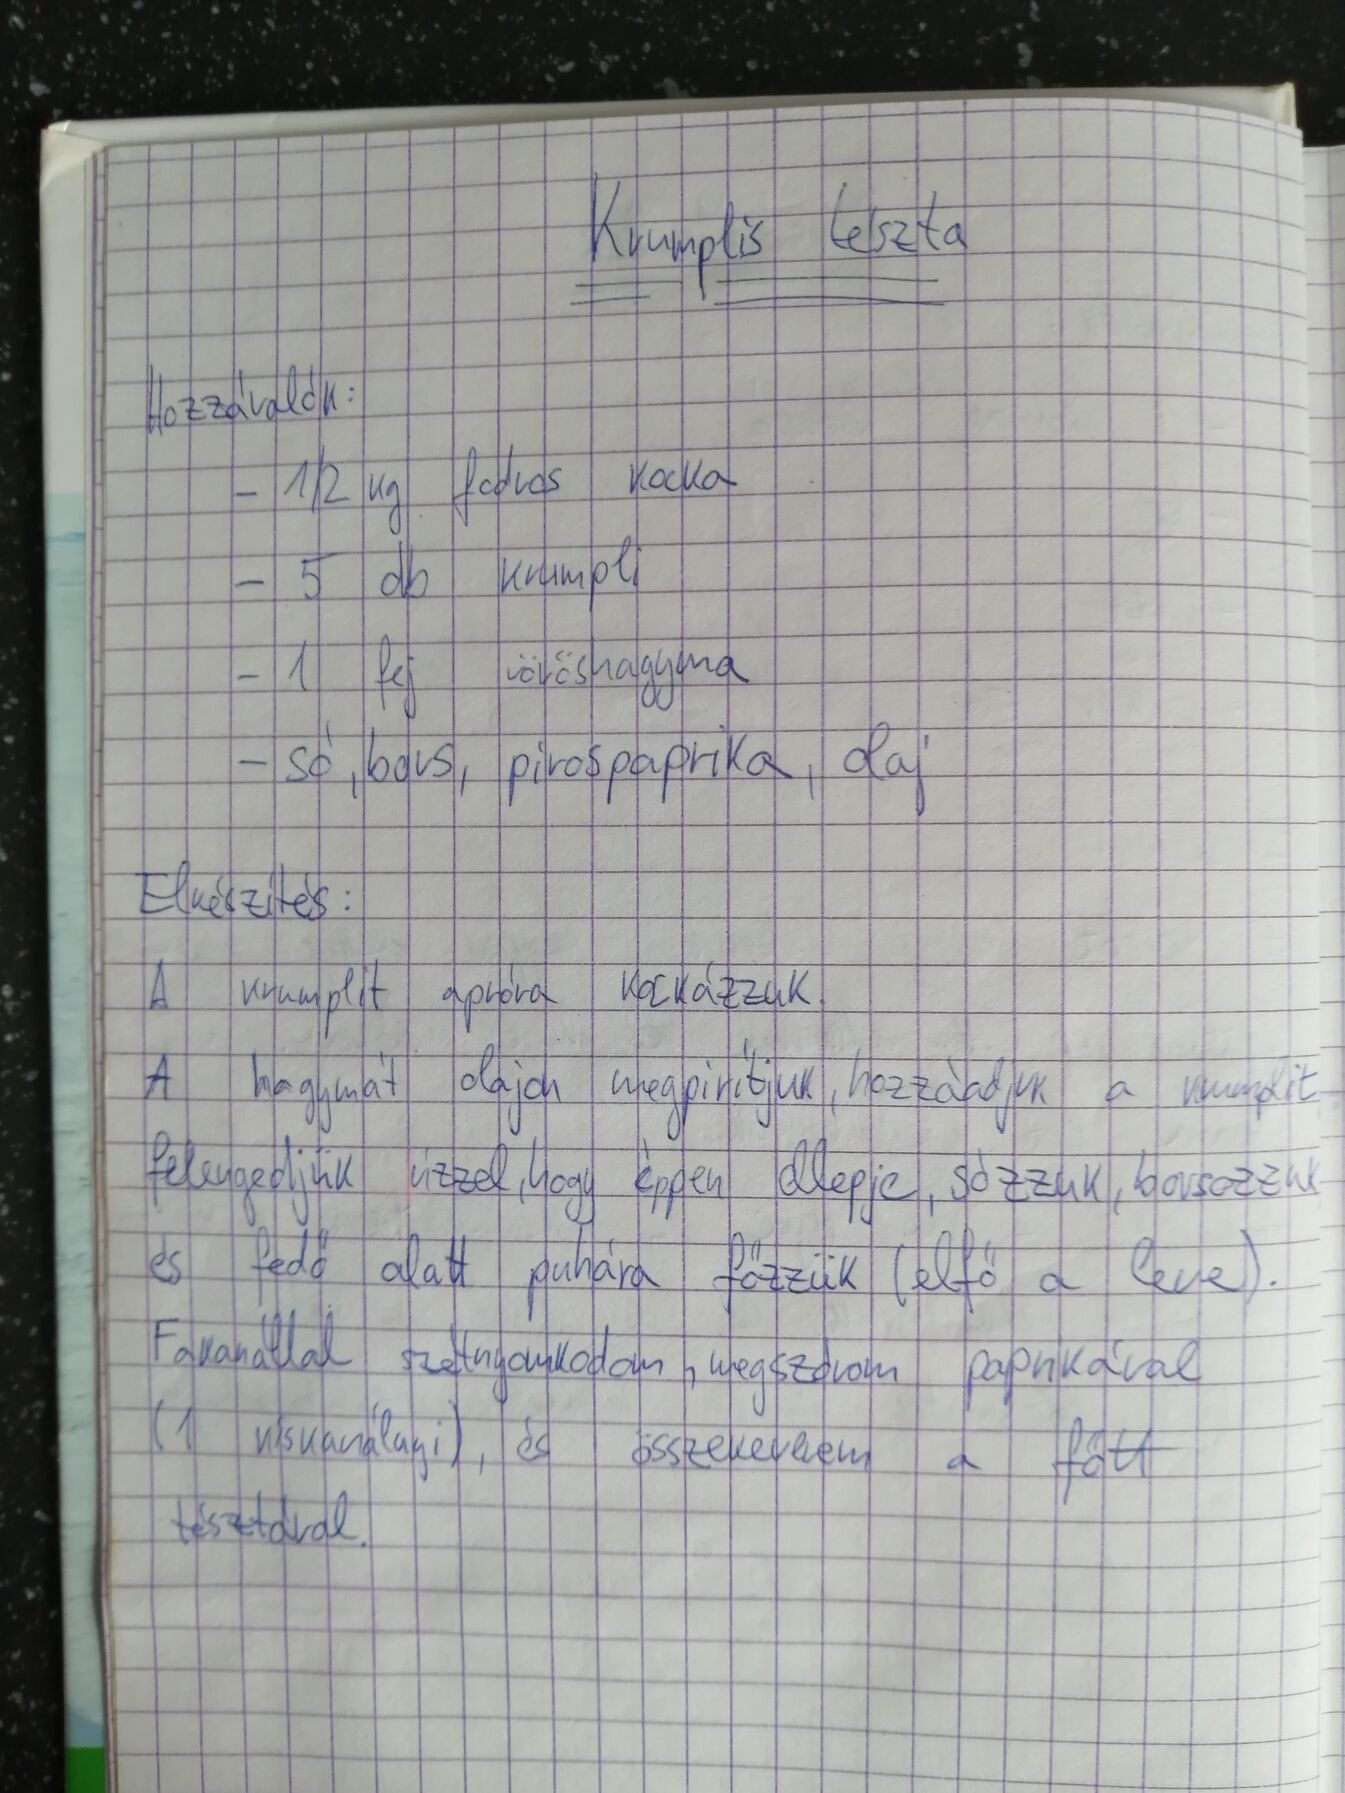 Krumplis tészta
Hozzávalók:
- 1/2 kg fodros kocka
- 5 db krumpli
- 1 fej vöröshagyma
- só, bors, pirospaprika, olaj
Elkészítés:
A krumplit apróra kockázzuk.
A hagymát olajon megpirítjuk, hozzáadjuk a krumplit
felengedjük vízzel, hogy éppen ellepje, sózzuk, borsozzuk
és fedő alatt puhára főzzük (elfő a leve).
Fakanállal szétnyomkodom, megszórom paprikával
(1 kiskanálagi), és összekeverem a főtt
tésztával.